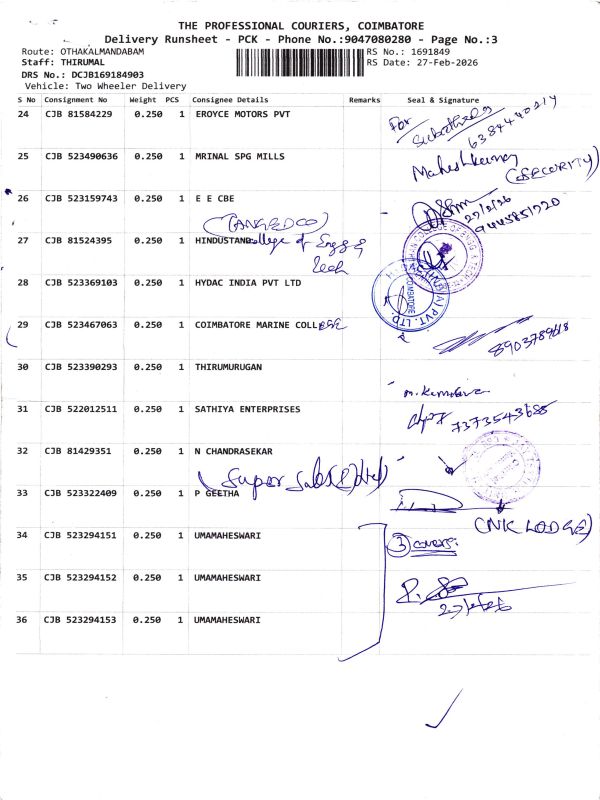 THE PROFESSIONAL COURIERS, COIMBATORE
Delivery Runsheet - PCK - Phone No.:9047080280 - Page No.:3
Route: OTHAKALMANDABAM RS No.: 1691849
Staff: THIRUMAL RS Date: 27-Feb-2026
DRS No.: DCJB169184903
Vehicle: Two Wheeler Delivery
S No Consignment No Weight PCS Consignee Details Remarks Seal & Signature
24 CJB 81584229 0.250 1 EROYCE MOTORS PVT For
25 CJB 523490636 0.250 1 MRINAL SPG MILLS
(SECURITY)
26 CJB 523159743 0.250 1 E E CBE 27/2/26
(TANGEDCO) 9445851720
27 CJB 81524395 0.250 1 HINDUSTAN college of Engg &
Tech
28 CJB 523369103 0.250 1 HYDAC INDIA PVT LTD
29 CJB 523467063 0.250 1 COIMBATORE MARINE COLLEGE
8903789618
30 CJB 523390293 0.250 1 THIRUMURUGAN
31 CJB 522012511 0.250 1 SATHIYA ENTERPRISES 7373543685
32 CJB 81429351 0.250 1 N CHANDRASEKAR
(Super
33 CJB 523322409 0.250 1 P GEETHA
(NK LODGE)
34 CJB 523294151 0.250 1 UMAMAHESWARI 3 covers
35 CJB 523294152 0.250 1 UMAMAHESWARI
36 CJB 523294153 0.250 1 UMAMAHESWARI